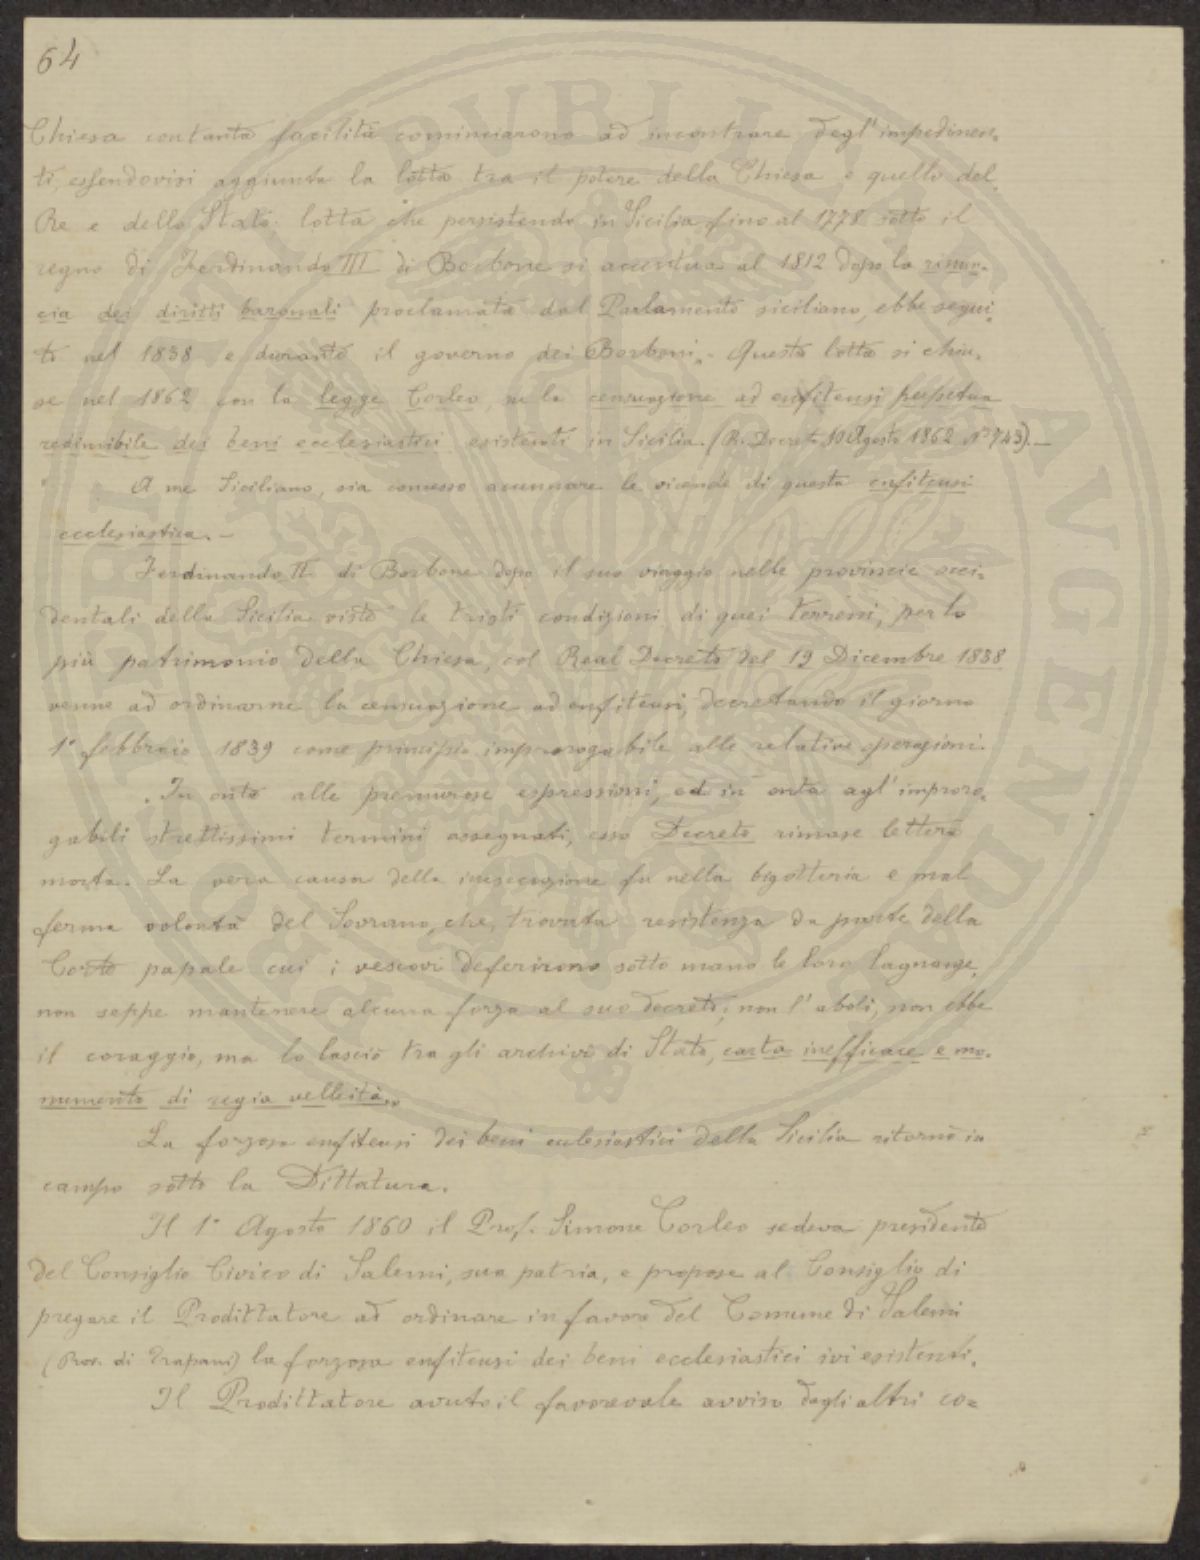 64
Chiesa con tanta facilità cominciarono ad incontrare degl'impedimen-
ti, essendovisi aggiunta la lotta tra il potere della Chiesa e quello del
Re e dello Stato. lotta che persistendo in Sicilia fino al 1778 sotto il
regno di Ferdinando III di Borbone si accentua al 1812 dopo la rinun-
cia dei diritti baronali proclamata dal Parlamento siciliano, ebbe segui-
ti nel 1838 e durante il governo dei Borboni. Questa lotta si chiu-
se nel 1862 con la legge Corleo, su la censuazione ad enfiteusi perpetua
redimibile dei beni ecclesiastici esistenti in Sicilia. (R. Decreto 10 Agosto 1862 N° 743).—
A me Siciliano, sia concesso accennare le vicende di questa enfiteusi
ecclesiastica.—
Ferdinando II di Borbone dopo il suo viaggio nelle provincie occi-
dentali della Sicilia visto le tristi condizioni di quei terreni, per lo
più patrimonio della Chiesa, col Real Decreto del 19 Dicembre 1838
venne ad ordinarne la censuazione ad enfiteusi, decretando il giorno
1° febbraio 1839 come principio improrogabile alle relative operazioni.
In onta alle premurose espressioni, ed in onta agl'improro-
gabili strettissimi termini assegnati, esso Decreto rimase lettera
morta. La vera causa della inesecuzione fu nella bigotteria e mal
ferma volontà del Sovrano, che, trovata resistenza da parte della
Corte papale cui i vescovi deferirono sotto mano le loro lagnanze,
non seppe mantenere alcuna forza al suo decreto; non l'abolì, non ebbe
il coraggio, ma lo lasciò tra gli archivi di Stato, carta inefficace e mo-
numento di regia velleità.
La forzosa enfiteusi dei beni ecclesiastici della Sicilia ritornò in
campo sotto la Dittatura.
Il 1° Agosto 1860 il Prof. Simone Corleo sedeva presidente
del Consiglio Civico di Salemi, sua patria, e propose al Consiglio di
pregare il Prodittatore ad ordinare in favore del Comune di Salemi
(Prov. di Trapani) la forzosa enfiteusi dei beni ecclesiastici ivi esistenti.
Il Prodittatore avuto il favorevole avviso dagli altri co-